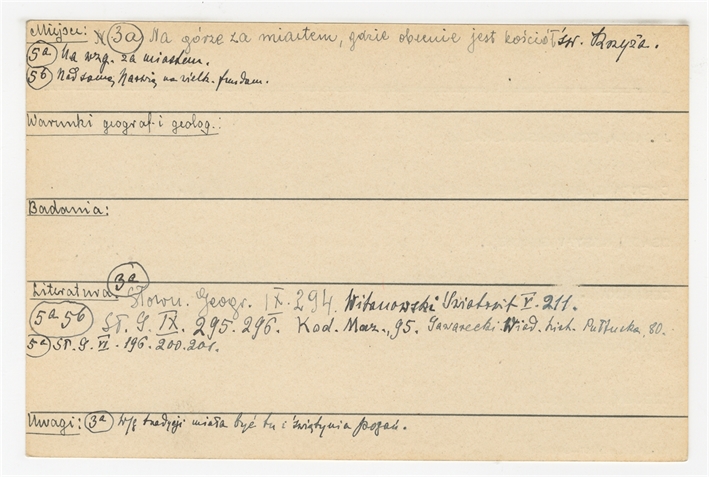 Miejsce: (3a) Na górze za miastem, gdzie obecnie jest kościół św. Krzyża.
(5a) Na wzg. za miastem.
(5b) Nad samą Narwią na wielk. fundam.
Warunki geograf. i geolog.:
Badania:
Literatura: (3a) Słown. Geogr. IX. 294. Witanowski V. 211.
(5a 5b) Sł. G. IX. 295. 296. Kod. Maz., 95. Gawarecki Wiad. hist. Pułtuska 80.
(5a) Sł. G. VI. 196. 200. 201.
Uwagi: (3a) Wg tradycji miała być tu świątynia pogań.